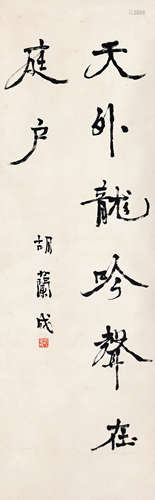 天外龍吟聲在
庭户
胡蘭成